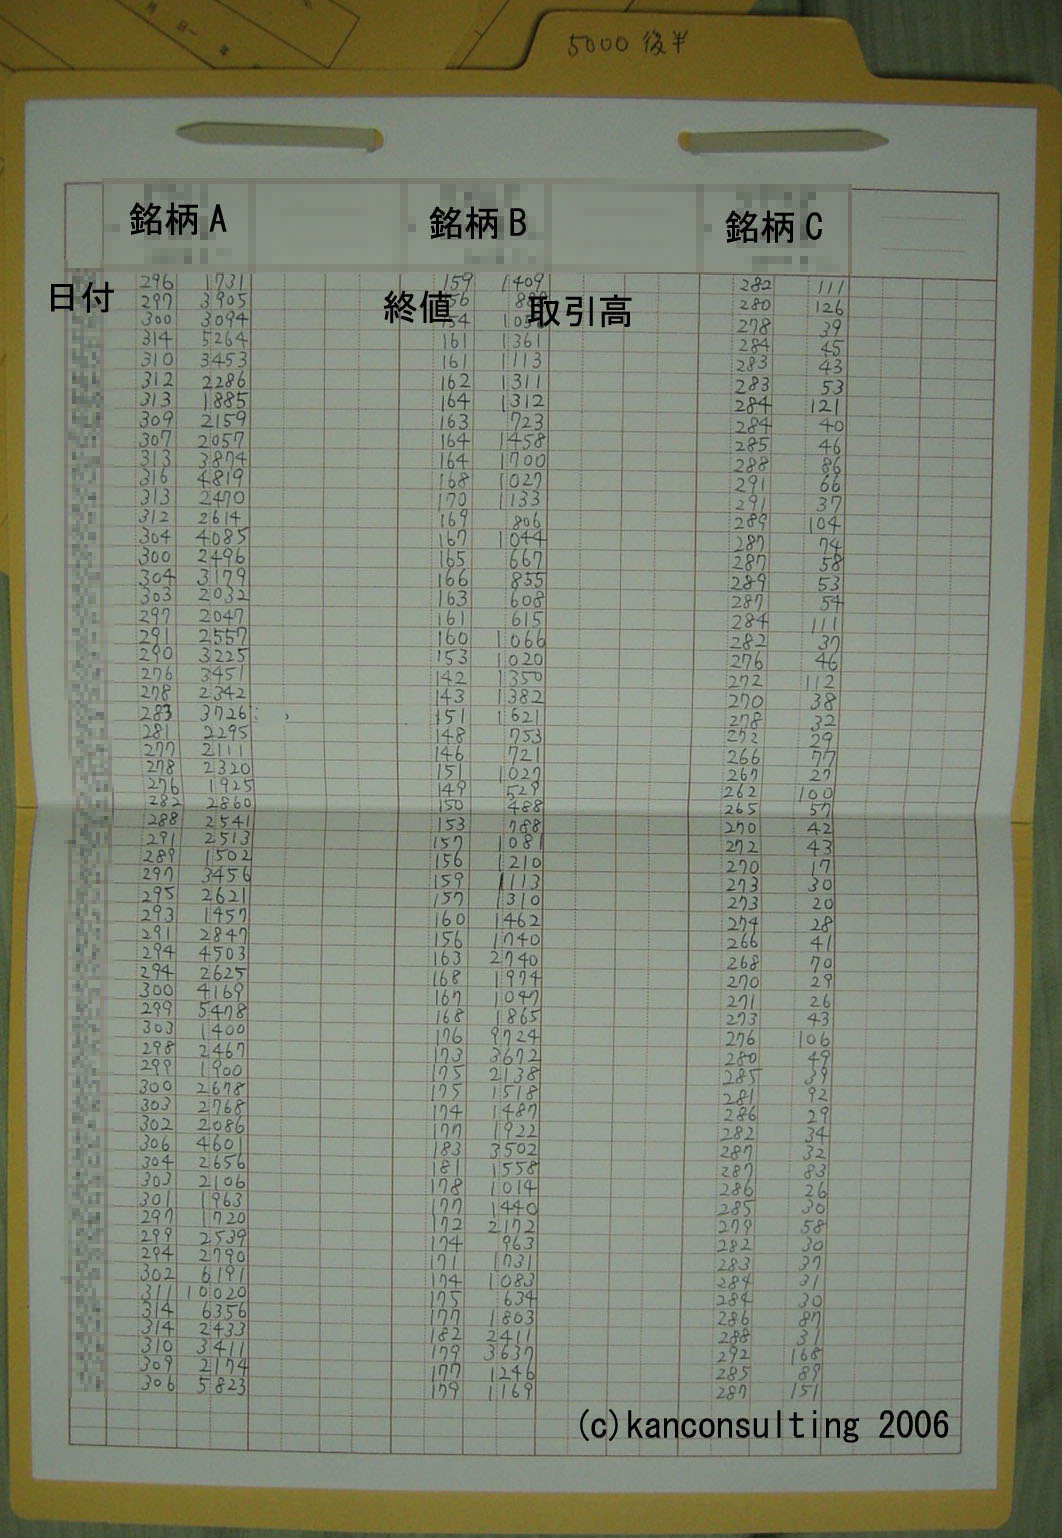 5000 後半
銘柄A 銘柄B 銘柄C
日付 終値 取引高
296 1731 159 1409 282 111
297 3905 280 126
300 3094 278 39
314 5264 161 1361 284 45
310 3453 161 1113 283 43
312 2286 162 1311 283 53
313 1885 164 1312 284 121
309 2159 163 723 284 40
307 2057 164 1458 285 46
313 3874 164 1700 288 86
316 4819 168 1027 291 66
313 2470 170 1133 291 37
312 2614 169 806 289 104
304 4085 167 1044 287 74
300 2496 165 667 287 58
304 3179 166 855 289 53
303 2032 163 608 287 54
297 2047 161 615 284 111
291 2557 160 1066 282 37
290 3225 153 1020 276 46
276 3451 142 1350 272 112
278 2342 143 1382 270 38
283 3726 151 1621 278 32
281 2295 148 753 272 29
277 2111 146 721 266 77
278 2320 151 1027 267 27
276 1925 149 529 262 100
282 2860 150 488 265 57
288 2541 153 788 270 42
291 2513 157 1081 272 43
289 1502 156 1210 270 17
297 3456 159 1113 273 30
295 2621 157 1310 273 20
293 1457 160 1462 274 28
291 2847 156 1740 266 41
294 4503 163 2740 268 70
294 2625 168 1974 270 29
300 4169 167 1047 271 26
299 5478 168 1865 273 43
303 1400 176 9724 276 106
298 2467 173 3672 280 49
299 1900 175 2138 285 39
300 2678 175 1518 281 92
303 2768 174 1487 286 29
302 2086 177 1922 282 34
306 4601 183 3502 287 32
304 2656 181 1558 287 83
303 2106 178 1014 286 26
301 1963 177 1440 285 30
297 1720 172 2172 279 58
299 2539 174 963 282 30
294 2790 171 1731 283 37
302 6191 174 1083 284 31
311 10020 175 634 284 30
314 6356 177 1803 286 87
314 2433 182 2411 288 31
310 3411 179 3637 292 168
309 2174 177 1246 285 89
306 5823 179 1169 287 151
(c)kanconsulting 2006